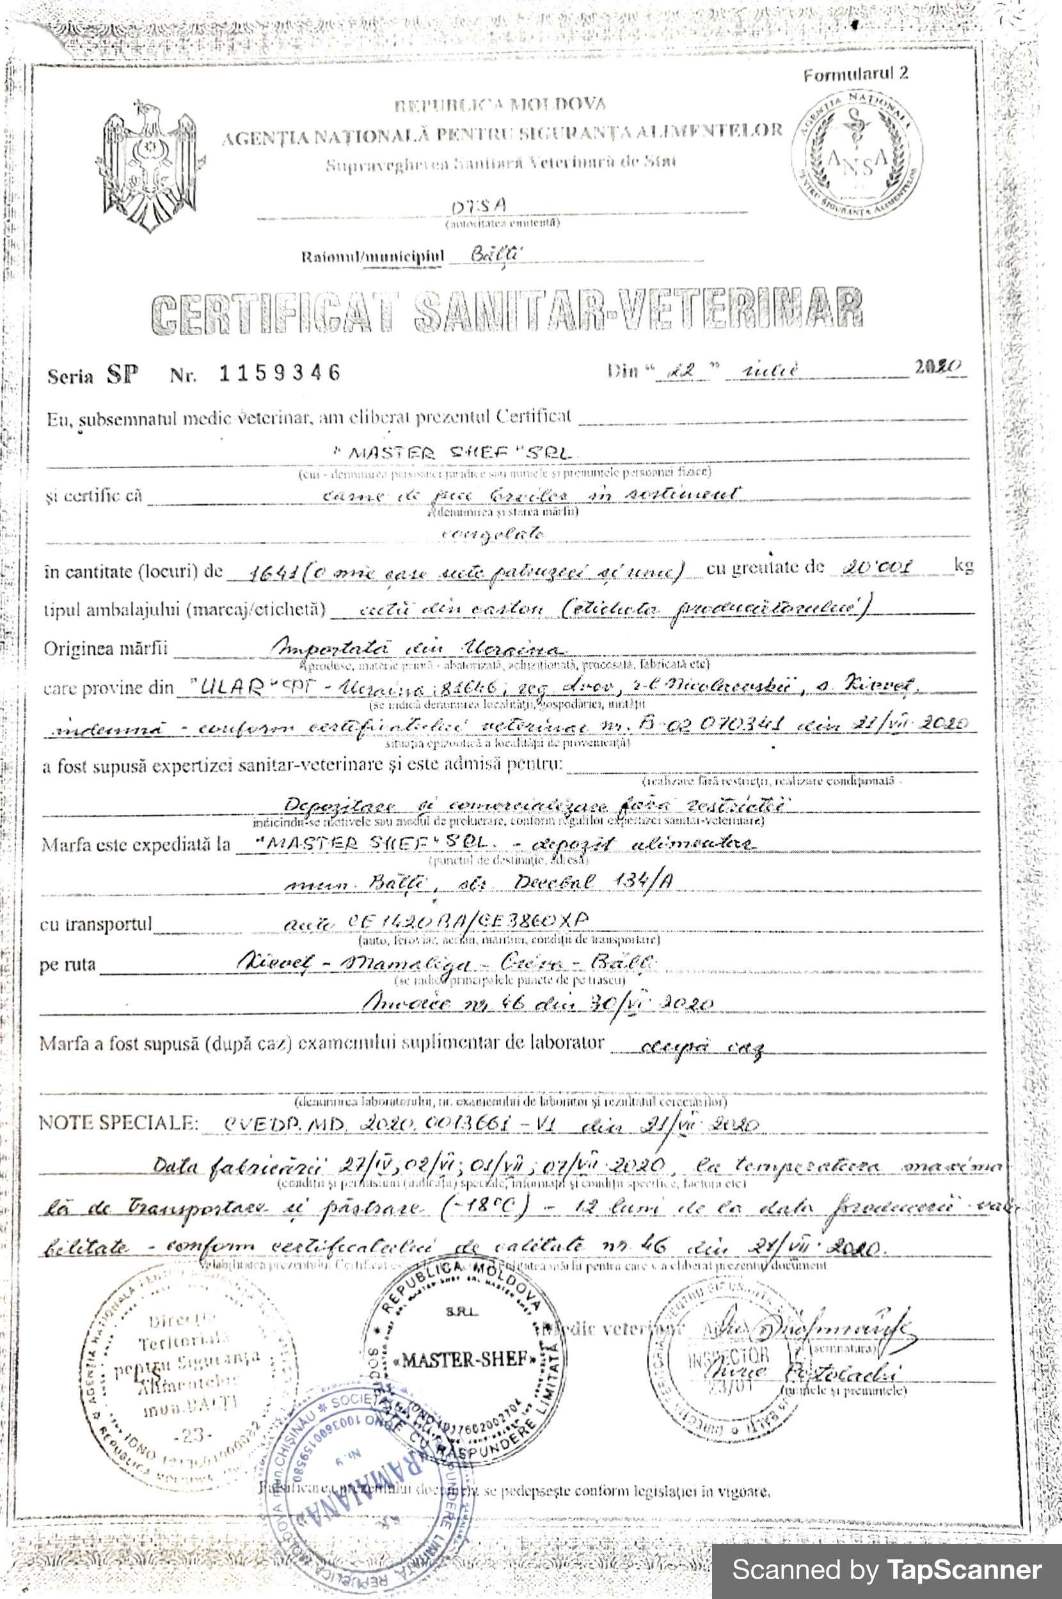 Formularul 2
REPUBLICA MOLDOVA
AGENȚIA NAȚIONALĂ PENTRU SIGURANȚA ALIMENTELOR
Supravegherea Sanitară Veterinară de Stat
AGENȚIA NAȚIONALĂ
ANSA
PENTRU SIGURANȚA ALIMENTELOR
DTSA
(autoritatea emitentă)
Raionul/municipiul Bălți
CERTIFICAT SANITAR-VETERINAR
Seria SP Nr. 1159346 Din “ 22 ” iulie 2020
Eu, subsemnatul medic veterinar, am eliberat prezentul Certificat
"MASTER SHEF" SRL
(cui - denumirea persoanei juridice sau numele și prenumele persoanei fizice)
și certific că carne de pui broiler în sortiment
(denumirea și starea mărfii)
congelate
în cantitate (locuri) de 1641 (o mie șase sute patruzeci și unu) cu greutate de 20'001 kg
tipul ambalajului (marcaj/etichetă) cutii din carton (eticheta producătorului)
Originea mărfii Importată din Ucraina
(produse, materie primă - abatorizată, achiziționată, procesată, fabricată etc)
care provine din "ULAR" - Ucraina, 81646, reg. Lvov, Nicolaevskii, s. Kieveț,
(se indică denumirea localității, gospodăriei, unității
indemnă - conform certificatului veterinar nr. B-02 070341 din 21/VII 2020
situația epizootică a localității de proveniență)
a fost supusă expertizei sanitar-veterinare și este admisă pentru:
(realizare fără restricții, realizare condiționată -
Depozitare și comercializare fără restricții
indicîndu-se motivele sau modul de prelucrare, conform regulilor expertizei sanitar-veterinare)
Marfa este expediată la "MASTER SHEF" SRL. - depozit alimentar
(punctul de destinație, adresa)
mun. Bălți, str. Decebal 134/A
cu transportul auto CE1420BA/CE3860XP
(auto, feroviar, aerian, maritim, condiții de transportare)
pe ruta Kieveț - Mamaliga - Criva - Bălți
(se indică principalele puncte de pe traseu)
Invoice nr 46 din 30/VI 2020
Marfa a fost supusă (după caz) examenului suplimentar de laborator după caz
(denumirea laboratorului, nr. examenului de laborator și rezultatul cercetărilor)
NOTE SPECIALE: CVEDP.MD. 2020.0013661 - V1 din 21/VII 2020
Data fabricării 27/IV; 02/VI; 01/VII; 07/VII 2020, la temperatura maxima
(condiții și permisiuni (indicații) speciale, informații și condiții specifice, factura etc)
lă de transportare și păstrare (-18°C) - 12 luni de la data producerii. vala
bilitate - conform certificatului de calitate nr. 46 din 21/VII 2020.
Direcția
Teritorială
pentru Siguranța
Alimentelor
mun. BĂLȚI
-23-
L.Ș.
REPUBLICA MOLDOVA
S.R.L.
«MASTER-SHEF»
SOCIETATE CU RĂSPUNDERE LIMITATĂ
Medic veterinar
(semnătura)
INSPECTOR
23/01
(numele și prenumele)
MOLDOVA mun. CHIȘINĂU * SOCIETATE
IDNO 1003600159580
Nr. 9
Falsificarea prezentului document se pedepsește conform legislației în vigoare.
Scanned by TapScanner